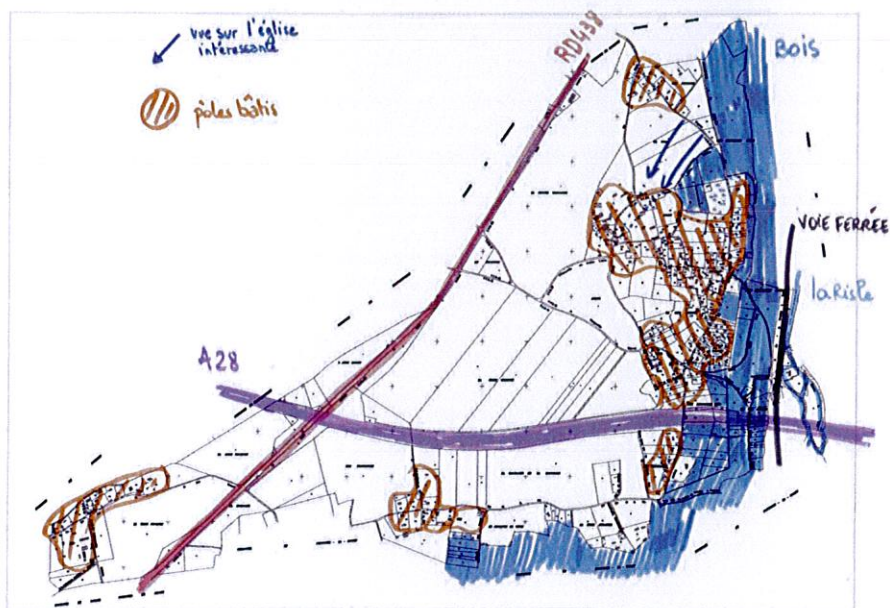 vue sur l'église
intéressante
pôles bâtis
RD438
BOIS
VOIE FERRÉE
la Risle
A28